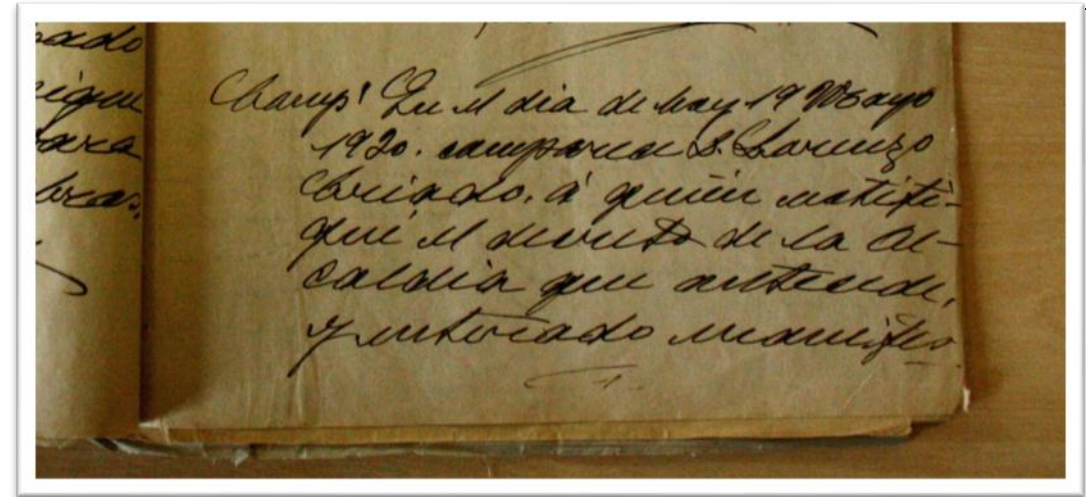 pado
Comp.ª En el dia de hoy 19 Mayo
1920. comparece D. Lorenzo
Criado. á quien notifi-
qué el decreto de la Al-
caldia que antecede,
y enterado manifes